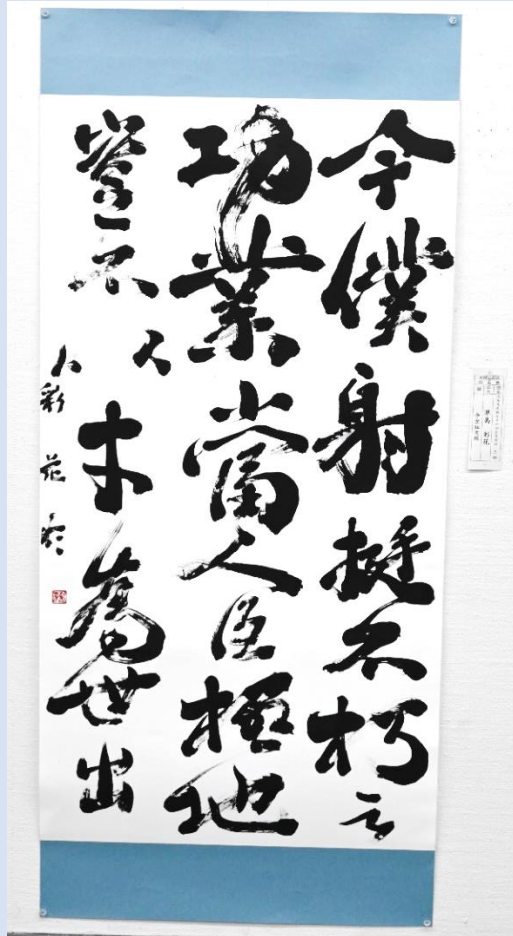 今僕射挺不朽之
功業當人臣極地
豈不以才為世出